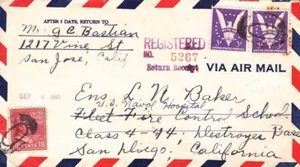 AFTER 5 DAYS, RETURN TO
Mr. G C Bastian
1217 Vine St
San Jose, Calif
REGISTERED
NO. 5267
Return Receipt
VIA AIR MAIL
SEP
Ens. L. N. Baker
U.S. Naval Hospital
Fleet Fire Control School
Class 4-44 Destroyer Base
San Diego, California